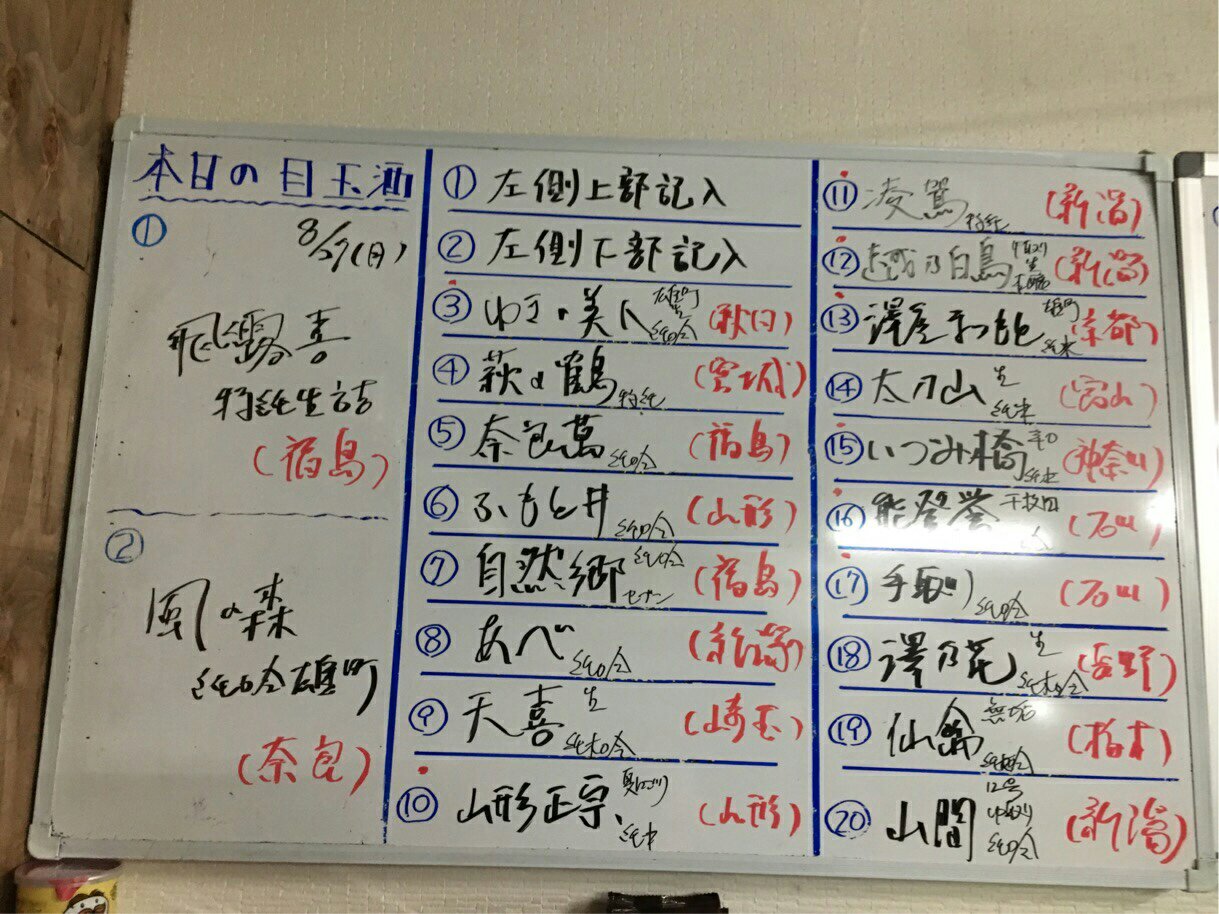 本日の目玉酒
①
8/27(日)
飛露喜
特純生詰
(福島)
②
風の森
純吟雄町
(奈良)
① 左側上部記入
② 左側下部記入
③ ゆき・美人 雄町 生 純吟 (秋田)
④ 萩の鶴 特純 (宮城)
⑤ 奈良萬 純吟 (福島)
⑥ ふもと井 純吟 (山形)
⑦ 自然郷 純吟 セブン (福島)
⑧ あべ 純吟 (新潟)
⑨ 天喜 生 純吟 (埼玉)
⑩ 山形正宗 夏ロゼ 純米 (山形)
⑪ 凌駕 特純 (新潟)
⑫ 越乃白鳥 生 (新潟)
⑬ 澤屋まつもと 雄町 純米 (京都)
⑭ 太刀山 生 純米 (富山)
⑮ いづみ橋 辛口 純米 (神奈川)
⑯ 能登誉 千枚田 (石川)
⑰ 手取川 純吟 (石川)
⑱ 澤乃花 生 純米吟 (長野)
⑲ 仙禽 無垢 (栃木)
⑳ 山間 12号 純吟 (新潟)